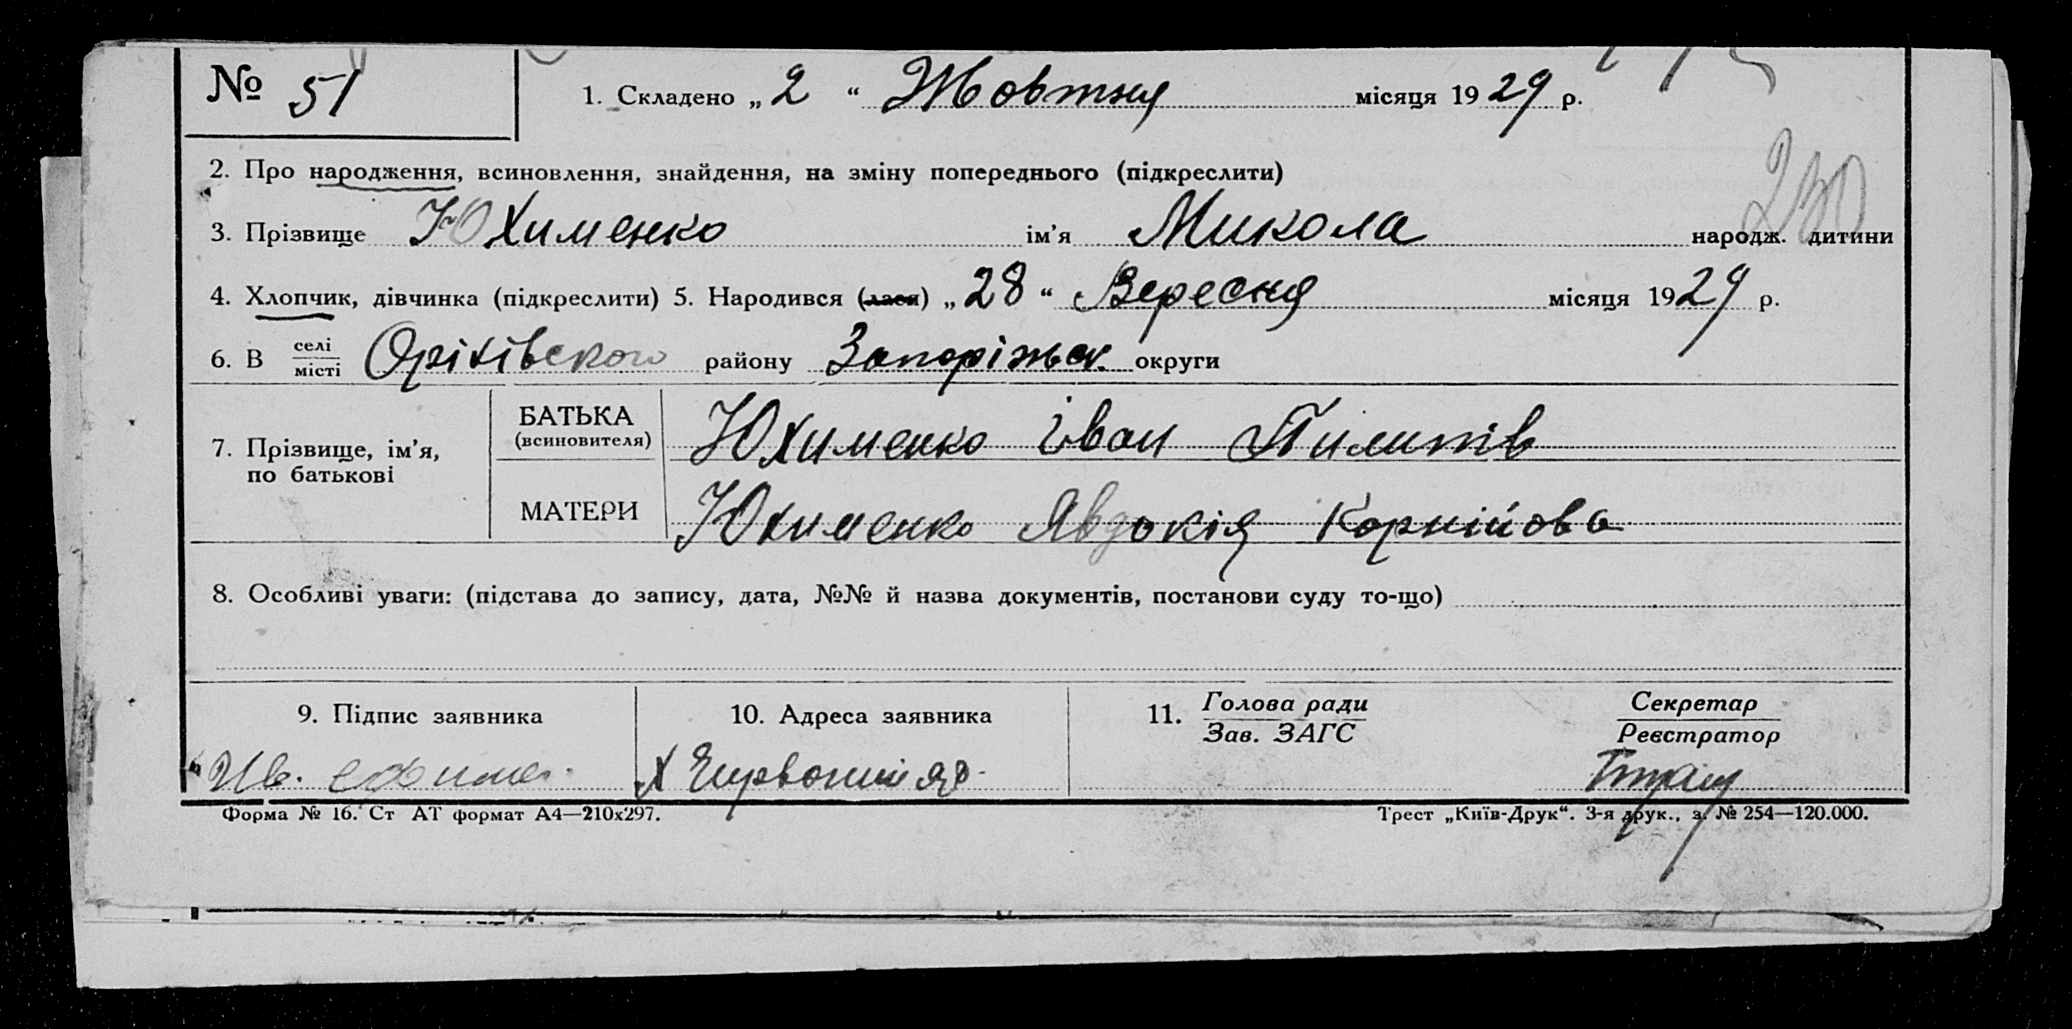 № 51 1. Складено „ 2 “ Жовтня місяця 1929 р.
2. Про народження, всиновлення, знайдення, на зміну попереднього (підкреслити)
230
3. Прізвище Юхименко ім’я Микола народж. дитини
4. Хлопчик, дівчинка (підкреслити) 5. Народився (лася) „ 28 “ Вересня місяця 1929 р.
6. В селі/місті Оріхівского району Запоріжск. округи
7. Прізвище, ім’я, по батькові
БАТЬКА (всиновителя) Юхименко Іван Пилипів
МАТЕРИ Юхименко Явдокія Корнійова
8. Особливі уваги: (підстава до запису, дата, №№ й назва документів, постанови суду то-що)
9. Підпис заявника 10. Адреса заявника 11. Голова ради/Зав. ЗАГС Секретар/Реєстратор
Ив. Х Червоний
Форма № 16. Ст АТ формат А4—210х297. Трест „Київ-Друк“. 3-я друк., з. № 254—120.000.